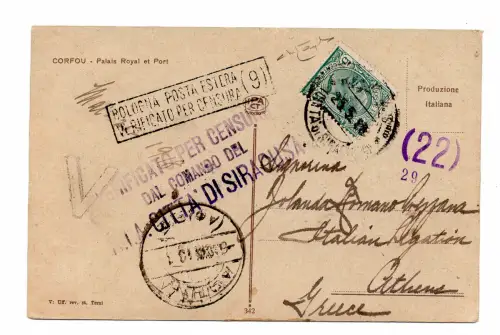 CORFOU – Palais Royal et Port
BOLOGNA POSTA ESTERA
VERIFICATO PER CENSURA
(9)
Produzione
Italiana
VERIFICATO PER CENSURA
DAL COMANDO DEL
CITTÀ DI SIRACUSA
(22)
29
Signorina
Jolanda Romano
Italian Legation
Athens
Greece
V: Uff. rev. st. Terni
342